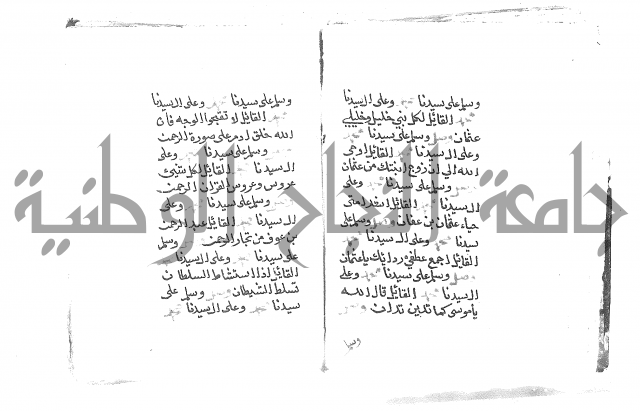 وسلم على سيدنا وعلى ال سيدنا
القائل لكل نبي خليل وخليلي
عثمان وسلم على سيدنا
وعلى ال سيدنا القائل اوحى
الله الي ان زوج ابنتك من عثمان
وسلم على سيدنا وعلى
ال سيدنا القائل اشد امتى
حياء عثمان بن عفان وسلم على
سيدنا وعلى ال سيدنا
القائل اجمع عطفي رداءك يا عثمان
وسلم على سيدنا وعلى
ال سيدنا القائل قال الله
يا موسى كما تدين تدان
وسلم
وسلم على سيدنا وعلى ال سيدنا
القائل لا تقبحوا الوجه فان
الله خلق ادم على صورة الرحمن
وسلم على سيدنا وعلى
ال سيدنا القائل لكل شيئ
عروس وعروس القران الرحمن
وسلم على سيدنا وعلى
ال سيدنا القائل عبد الرحمن
بن عوف من تجار الرحمن وسلم
على سيدنا وعلى ال سيدنا
القائل اذا استشاط السلطان
تسلط الشيطان وسلم على
سيدنا وعلى ال سيدنا
جامعة النجاح الوطنية